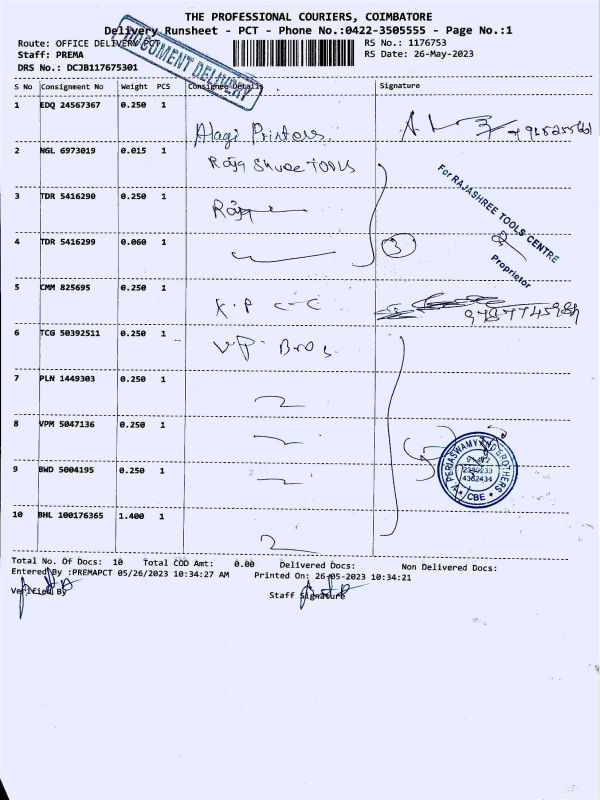 THE PROFESSIONAL COURIERS, COIMBATORE
Delivery Runsheet - PCT - Phone No.:0422-3505555 - Page No.:1
Route: OFFICE DELIVERY PCT
RS No.: 1176753
Staff: PREMA
RS Date: 26-May-2023
DRS No.: DCJB117675301
DOCUMENT DELIVERY
S No Consignment No Weight PCS Consignee Details Signature
1 EDQ 24567367 0.250 1
Alagi Printers
2 NGL 6973019 0.015 1
Raja Shree TOOLS
3 TDR 5416290 0.250 1
For RAJASHREE TOOLS CENTRE
Proprietor
4 TDR 5416299 0.060 1
3
5 CMM 825695 0.250 1
K.P C-C
6 TCG 50392511 0.250 1
V.P. Bros.
7 PLN 1449303 0.250 1
8 VPM 5047136 0.250 1
9 BWD 5004195 0.250 1
A. PERIASWAMY BROTHERS
4362434
CBE
10 BHL 100176365 1.400 1
Total No. Of Docs: 10 Total COD Amt: 0.00 Delivered Docs: Non Delivered Docs:
Entered By :PREMAPCT 05/26/2023 10:34:27 AM Printed On: 26-05-2023 10:34:21
Verified By Staff Signature